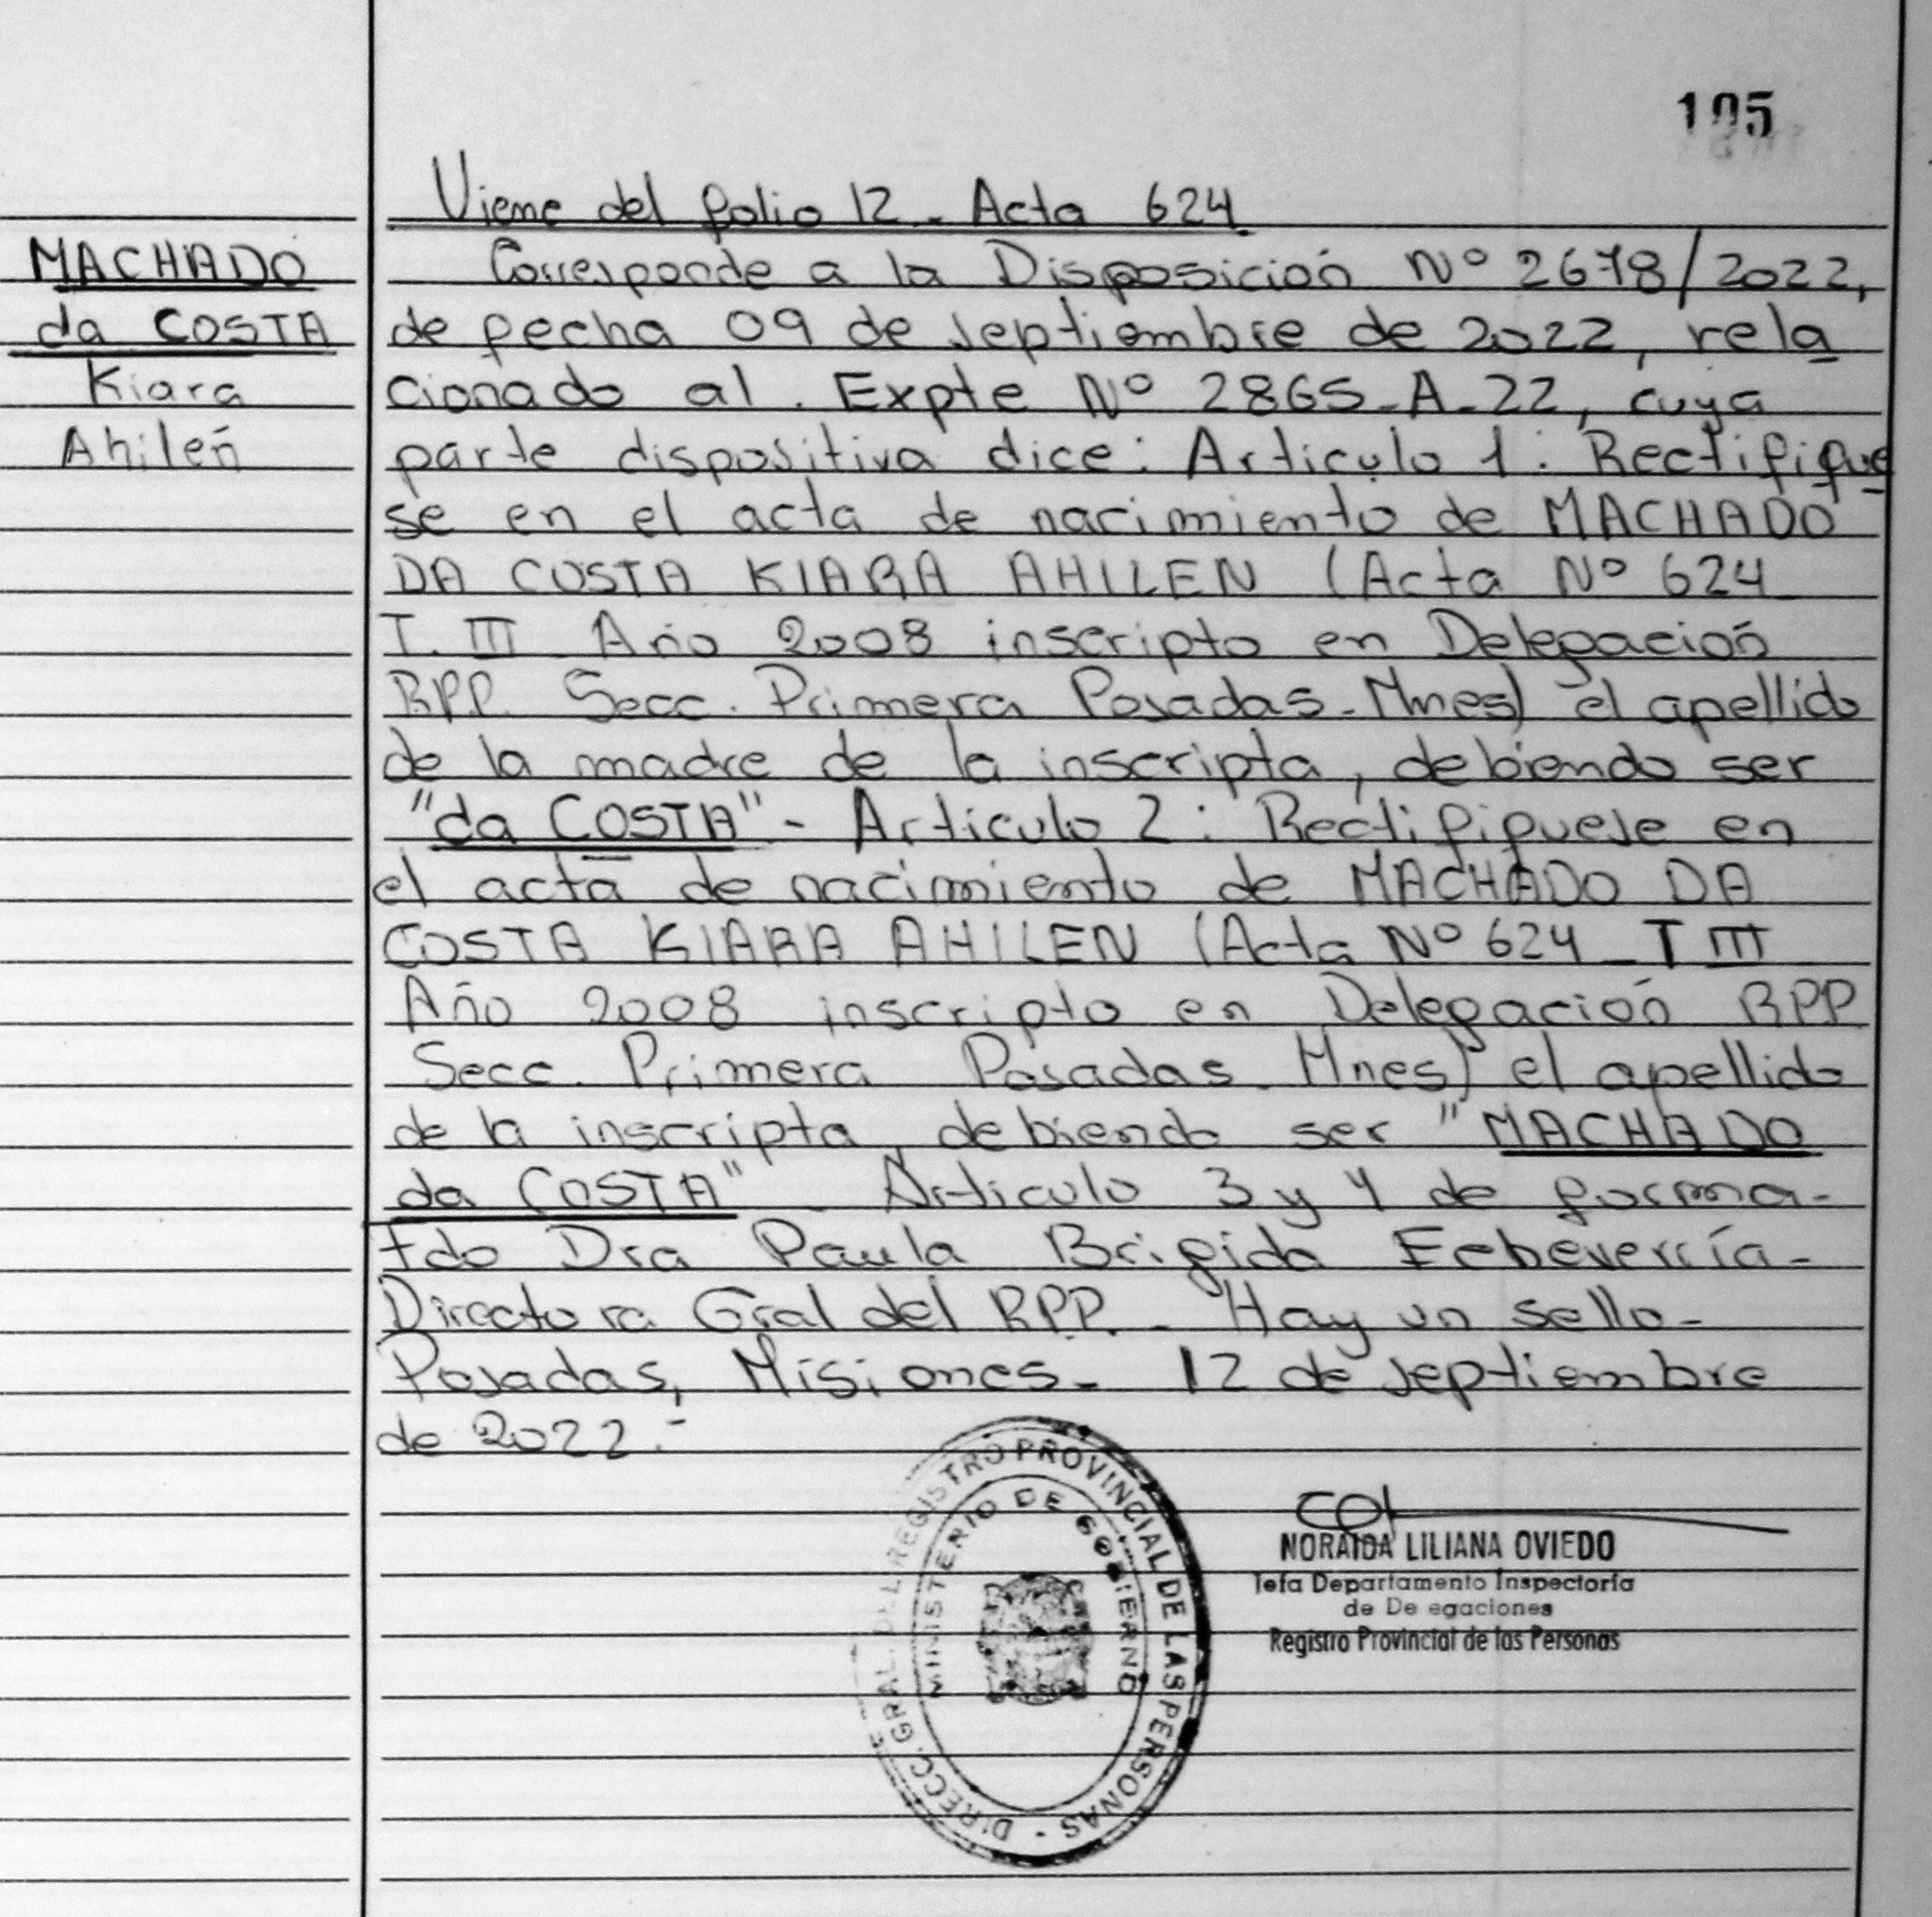 105
Viene del folio 12 - Acta 624
MACHADO
da COSTA
Kiara
Ahilen
Corresponde a la Disposición Nº 2678/2022,
de fecha 09 de septiembre de 2022, rela
cionado al. Expte Nº 2865-A-22, cuya
parte dispositiva dice: Articulo 1: Rectifique
se en el acta de nacimiento de MACHADO
DA COSTA KIARA AHILEN (Acta Nº 624
T. III Año 2008 inscripto en Delegación
RPP. Secc. Primera Posadas - Mnes) el apellido
de la madre de la inscripta, debiendo ser
"da COSTA" - Articulo 2: Rectifiquese en
el acta de nacimiento de MACHADO DA
COSTA KIARA AHILEN (Acta Nº 624 - T III
Año 2008 inscripto en Delegación RPP
Secc. Primera Posadas - Mnes) el apellido
de la inscripta, debiendo ser "MACHADO
da COSTA" - Articulo 3 y 4 de forma -
Fdo Dra Paula Brigida Echeverría -
Directora Gral del RPP. - Hay un sello -
Posadas, Misiones - 12 de septiembre
de 2022.-
DIRECC. GRAL. DEL REGISTRO PROVINCIAL DE LAS PERSONAS -
MINISTERIO DE GOBIERNO
NORAIDA LILIANA OVIEDO
Jefa Departamento Inspectoría
de De egaciones
Registro Provincial de las Personas